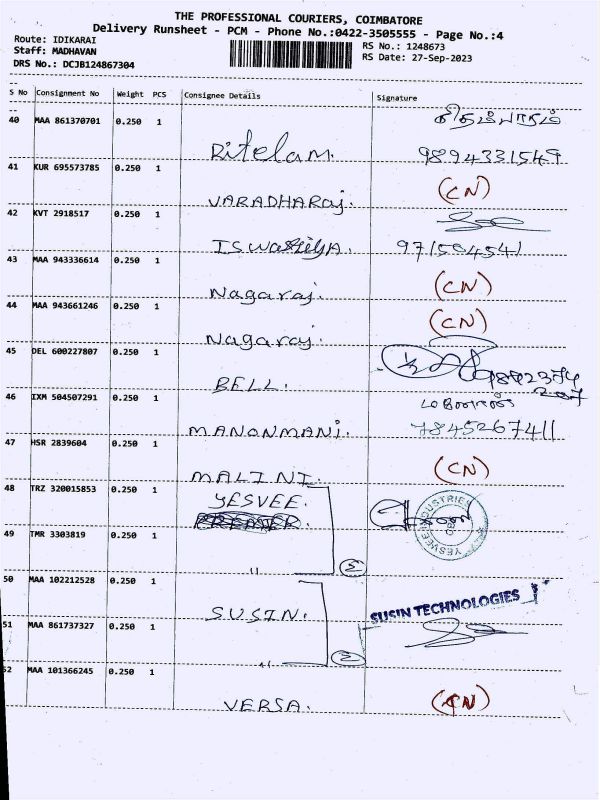 THE PROFESSIONAL COURIERS, COIMBATORE
Delivery Runsheet - PCM - Phone No.:0422-3505555 - Page No.:4
Route: IDIKARAI
RS No.: 1248673
Staff: MADHAVAN
RS Date: 27-Sep-2023
DRS No.: DCJB124867304
S No Consignment No Weight PCS Consignee Details Signature
40 MAA 861370701 0.250 1
Ritelam. 9894331549
41 KUR 695573785 0.250 1
VARADHARaj. (CN)
42 KVT 2918517 0.250 1
971504541
43 MAA 943336614 0.250 1
Nagaraj. (CN)
44 MAA 943661246 0.250 1
Nagaraj. (CN)
45 DEL 600227807 0.250 1
BELL.
46 IXM 504507291 0.250 1
MANONMANi. 7845267411
47 HSR 2839604 0.250 1
MALINI. (CN)
48 TRZ 320015853 0.250 1
YESVEE.
YESVEE INDUSTRIES
49 TMR 3303819 0.250 1
50 MAA 102212528 0.250 1
SUSIN.
SUSIN TECHNOLOGIES
51 MAA 861737327 0.250 1
52 MAA 101366245 0.250 1
VERSA. (CN)